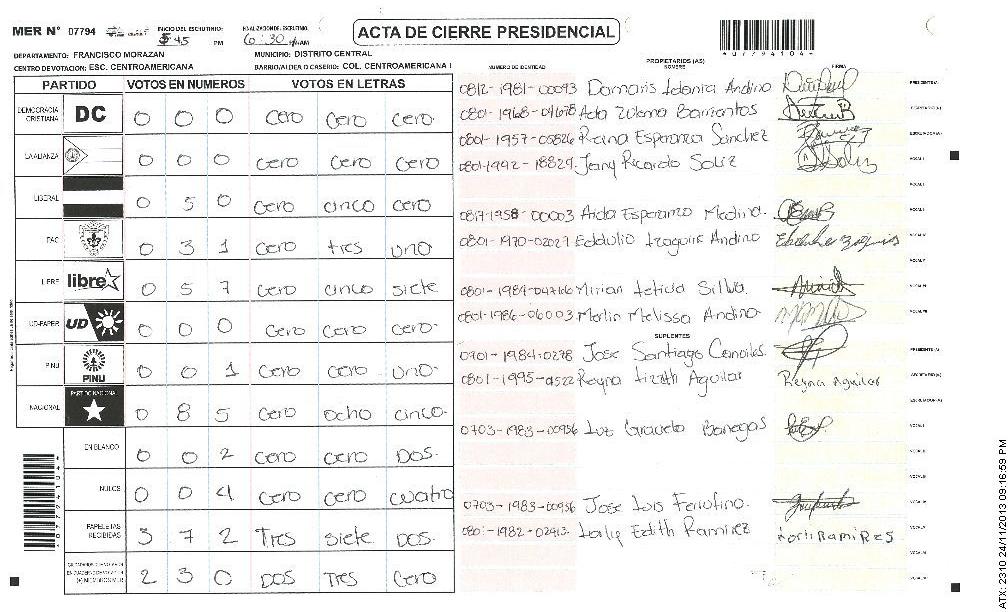 MER N° 07794 INICIO DEL ESCRUTINIO: 5:45 PM FINALIZACION DE ESCRUTINIO: 6:30
ACTA DE CIERRE PRESIDENCIAL
DEPARTAMENTO: FRANCISCO MORAZAN MUNICIPIO: DISTRITO CENTRAL
CENTRO DE VOTACION: ESC. CENTROAMERICANA BARRIO/ALDEA O CASERIO: COL. CENTROAMERICANA I
PARTIDO VOTOS EN NUMEROS VOTOS EN LETRAS
DEMOCRACIA CRISTIANA DC 0 0 0 cero cero cero
LA ALIANZA 0 0 0 cero cero cero
LIBERAL 0 5 0 cero cinco cero
PAC 0 3 1 cero tres uno
LIBRE libre 0 5 7 cero cinco siete
UD-FAPER UD 0 0 0 cero cero cero
PINU PINU 0 0 1 cero cero uno
NACIONAL PARTIDO NACIONAL 0 8 5 cero ocho cinco
EN BLANCO 0 0 2 cero cero DOS
NULOS 0 0 4 cero cero cuatro
PAPELETAS RECIBIDAS 3 7 2 Tres siete DOS
2 3 0 DOS Tres Cero
NUMERO DE IDENTIDAD PROPIETARIOS (AS) NOMBRE FIRMA
0812-1981-00093 Damaris Idania Andino PRESIDENTE(A)
0801-1968-04678 Ada Zulema Barrientos SECRETARIO(A)
0801-1957-05826 Reina Esperanza Sanchez ESCRUTADOR(A)
0801-1992-18829 Jeany Ricardo Soliz VOCAL I
0817-1958-00003 Aida Esperanza Medina
0801-1970-02027 Eddulio Izaguirre Andino
0801-1984-04766 Mirian Leticia Silva
0801-1986-06003 Merlin Melissa Andino
SUPLENTES
0701-1984-0278 Jose Santiago Canales PRESIDENTE(A)
0801-1995-0522 Reyna Lizeth Aguilar Reyna Aguilar SECRETARIO(A)
ESCRUTADOR(A)
0703-1983-00956 Luz Graciela Banegas VOCAL I
0703-1983-00956 Jose Luis Ferrufino
0801-1982-02913 Edith Ramirez
*07794104*
ATX: 2310 24/11/2013 09:16:59 PM